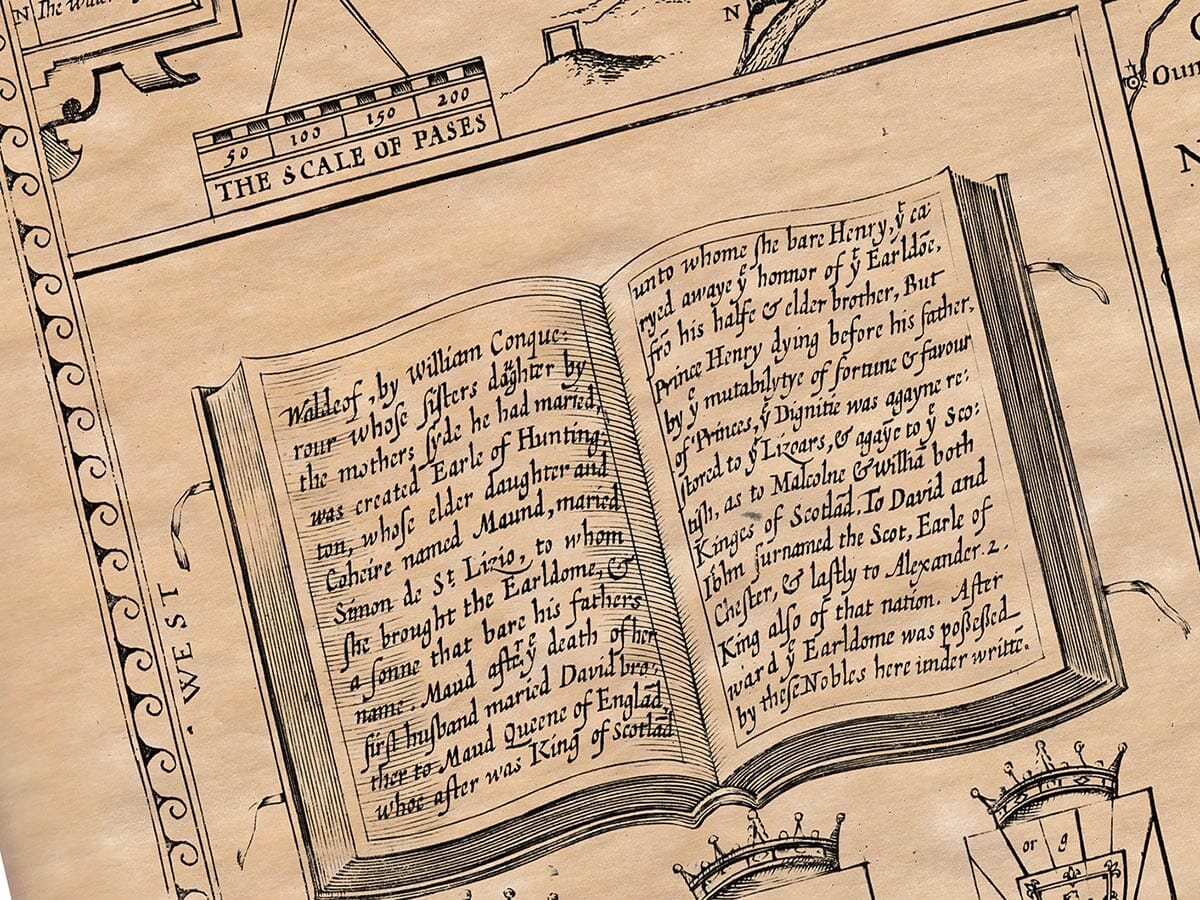 N The Water
50 100 150 200
THE SCALE OF PASES
N
Oun
N
WEST
Waldeof, by William Conque:
rour whose sisters daughter by
the mothers syde he had maried,
was created Earle of Hunting:
ton, whose elder daughter and
Coheire named Maund, maried
Simon de St. Lizio, to whom
she brought the Earldome, &
a sonne that bare his fathers
name. Maud after yͤ death of her
first husband maried David bro:
ther to Maud Queene of Englād,
whoe after was King of Scotlād
unto whome she bare Henry, yͭ ca:
ryed awaye yͤ honnor of yͭ Earldōe,
frō his halfe & elder brother, But
Prince Henry dying before his father,
by yͤ mutabilytye of fortune & favour
of Princes, yͤ Dignitie was agayne re:
stored to yͤ Lizoars, & agayē to yͤ Sco:
tish, as to Malcolne & Willā both
Kinges of Scotlād. To David and
Iohn surnamed the Scot, Earle of
Chester, & lastly to Alexander. 2.
King also of that nation. After
ward yͤ Earldome was poßeßed
by these Nobles here under writtē.
or g